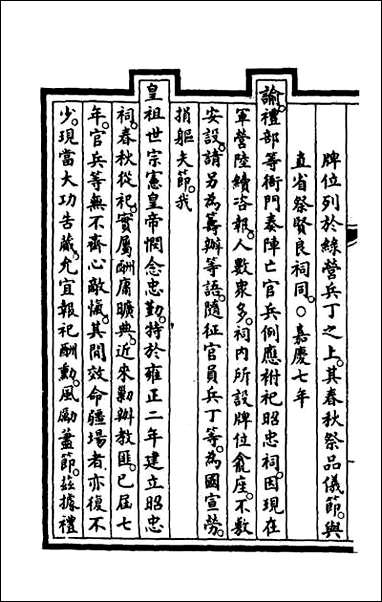 牌位列於綠營兵丁之上。其春秋祭品儀節。與
直省祭賢良祠同。○嘉慶七年
諭。禮部等衙門奏陣亡官兵例應祔祀昭忠祠。因現在
軍營陸續咨報。人數衆多。祠内所設牌位龕座。不敷
安設。請另為籌辦等語。隨征官員兵丁等。為國宣勞。
捐軀夫節。我
皇祖世宗憲皇帝憫念忠勤。特於雍正二年建立昭忠
祠。春秋從祀。實屬酬庸曠典。近來勦辦教匪。已屆七
年。官兵等無不齊心敵愾。其間效命疆場者。亦復不
少。現當大功告蕆。允宜報祀酬勳。風勵藎節。茲據禮